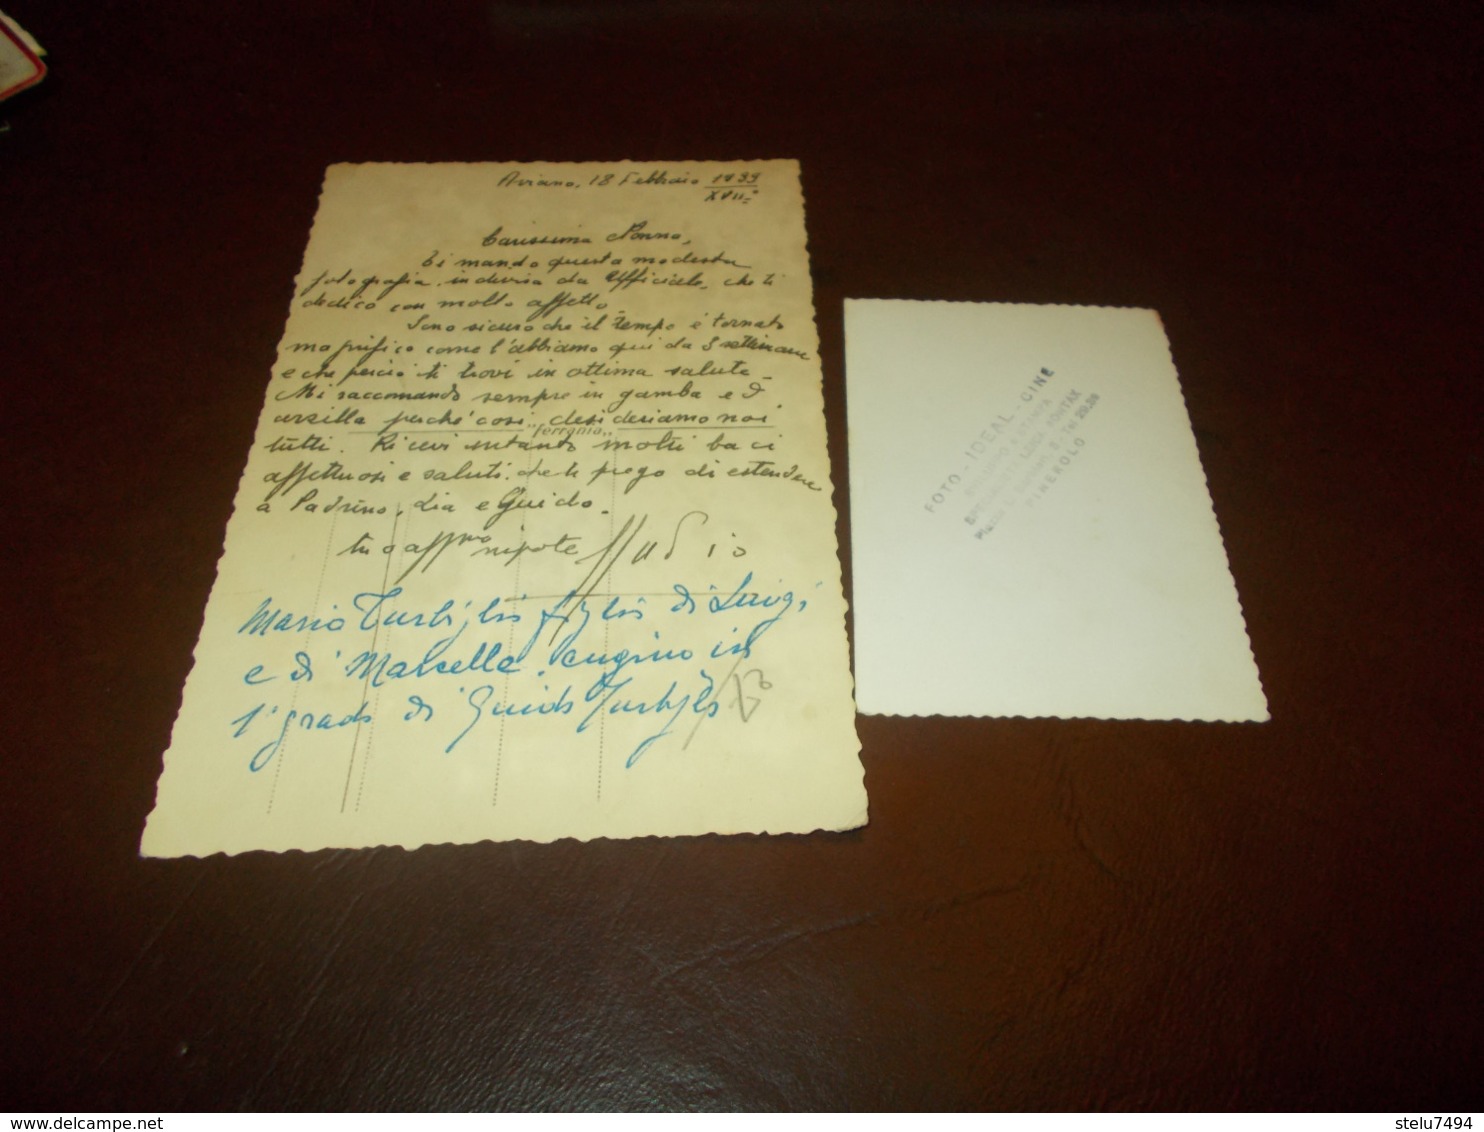 Aviano, 18 Febbraio 1939
XVII°
Carissima Nonna,
ti mando questa modesta
fotografia in divisa da Ufficiale, che ti
dedico con molto affetto.
Sono sicuro che il tempo è tornato
magnifico come l'abbiamo qui da 3 settimane
e che perciò ti trovi in ottima salute.
Mi raccomando sempre in gamba ed
arzilla perchè così desideriamo noi
"ferrania"
tutti. Ricevi intanto molti baci
affettuosi e saluti che ti prego di estendere
a Padrino, Lia e Guido.
tuo aff.mo nipote
Mario Turbiglio figlio di Luigi
e di Marcella, cugino in
1° grado di Guido Turbiglio
FOTO IDEAL - CINE
PINEROLO
delcampe.net
stelu7494